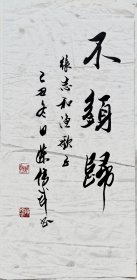 不須歸
張志和漁歌子
丑冬日